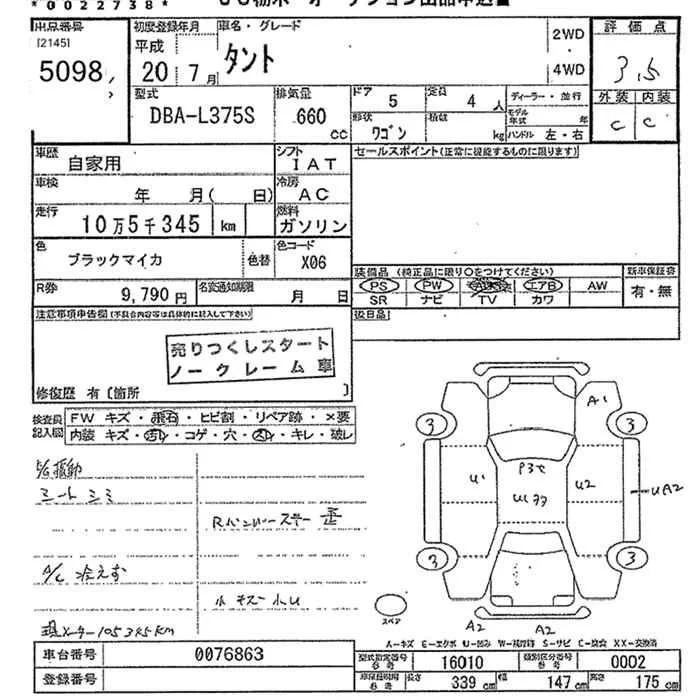 *0022738*
出品番号
[2145]
5098
初度登録年月
平成
20 7月
車名・グレード
タント
2WD
4WD
評価点
3.5
外装 内装
C C
型式
DBA-L375S
排気量
660
CC
ドア
5
定員
4 人
ディーラー・並行
モデル年式 年
形状
ワゴン
積載
kg
ハンドル 左・右
車歴
自家用
シフト
IAT
セールスポイント(正常に機能するものに限ります)
車検
年 月( 日)
冷房
AC
走行
10万5千345 km
燃料
ガソリン
色
ブラックマイカ
色替
色コード
X06
装備品 (純正品に限り○をつけてください)
新車保証書
PS PW エアB AW
有・無
SR ナビ TV カワ
R券
9,790円
名変通知期限
月 日
後日品
注意事項申告欄(不具合内容等は具体的に記入して下さい)
売りつくしスタート
ノークレーム車
修復歴 有〔箇所 〕
検査員
記入欄
FW キズ・飛石・ヒビ割・リペア跡・×要
内装 キズ・汚れ・コゲ・穴・スレ・キレ・破レ
シートシミ
A/C 冷えず
現メーター105345km
A1
3 3
U1
U2
UA2
3 3
スペア
A2 A2
A-キズ E-エクボ U-凹み W-補修跡 S-サビ C-腐食 XX-交換済
車台番号
0076863
型式指定番号
参考
16010
類別区分番号
参考
0002
登録番号
長さ
339 cm
幅
147 cm
高さ
175 cm